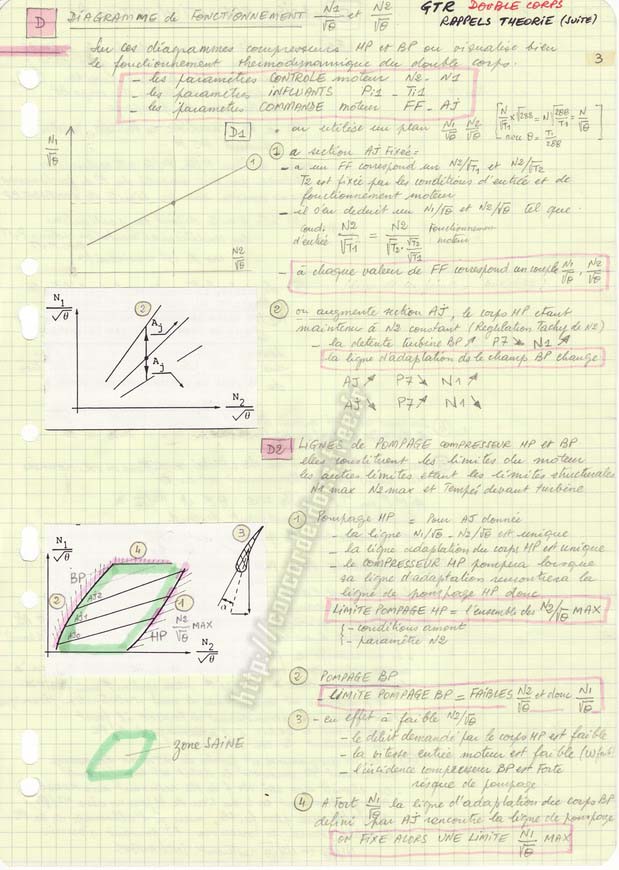 D DIAGRAMME de FONCTIONNEMENT N1/√θ et N2/√θ
GTR DOUBLE CORPS
RAPPELS THEORIE (SUITE)
3
Sur ces diagrammes compresseurs HP et BP on visualise bien
le fonctionnement thermodynamique du double corps.
– les paramètres CONTROLE moteur N2 - N1
– les paramètres INFLUANTS Pi1 - Ti1
– les paramètres COMMANDE moteur FF - AJ
D1 • on utilise un plan N1/√θ N2/√θ
[N/√T1 × √288 = N√288/T1 = N/√θ
avec θ = T1/288]
N1/√θ
1
N2/√θ
1 a section AJ Fixée =
– a un FF correspond un N2/√T1 et N2/√T2
T2 est fixée par les conditions d'entrée et de
fonctionnement moteur
– il s'en deduit un N1/√θ et N2/√θ tel que
Cond. d'entrée N2/√T1 = N2/√T2 · √T2/√T1 Fonctionnement moteur
– à chaque valeur de FF correspond un couple N1/√θ, N2/√θ
N1/√θ
2
Aj
Aj
N2/√θ
2 on augmente section AJ, le corps HP etant
maintenu à N2 constant (Regulation Tachy de N2)
– la detente turbine BP↗ P7↘ N1↗
la ligne d'adaptation de le champ BP change
AJ↗ P7↘ N1↗
AJ↘ P7↗ N1↘
D2 LIGNES de POMPAGE COMPRESSEUR HP et BP
elles constituent les limites du moteur
les autres limites etant les limites structurales
N1 max N2 max et Tempé devant turbine
N1/√θ
4
3
BP
2
AJ2
AJ1
AJ0
1
HP
N2/√θ MAX
N2/√θ
α
1 Pompage HP = Pour AJ donnée
– la ligne N1/√θ - N2/√θ est unique
– la ligne adaptation du corps HP est unique
– le COMPRESSEUR HP pompera lorsque
sa ligne d'adaptation rencontrera la
ligne de pompage HP donc
LIMITE POMPAGE HP = l'ensemble des N2/√θ MAX
{– conditions amont
{– paramètre N2
2 POMPAGE BP
– LIMITE POMPAGE BP = FAIBLES N2/√θ et donc N1/√θ
3 – en effet à faible N2/√θ
– le débit demandé par le corps HP est faible
– la vitesse entrée moteur est faible
– l'incidence compresseur BP est Forte
risque de pompage
zone SAINE
4 A Fort N1/√θ la ligne d'adaptation du corps BP
defini par AJ rencontre la ligne de pompage
ON FIXE ALORS UNE LIMITE N1/√θ MAX
http://concorde-jouet.free.fr